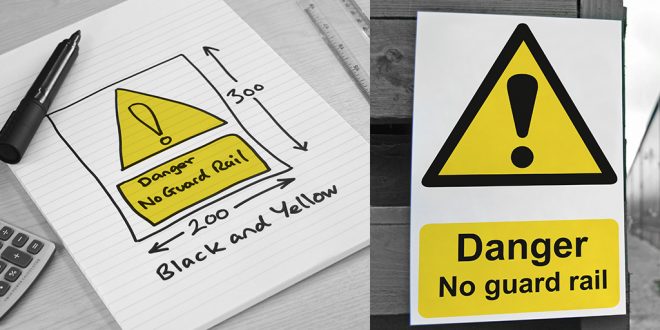 300
Danger
No Guard Rail
200
Black and Yellow
Danger
No guard rail